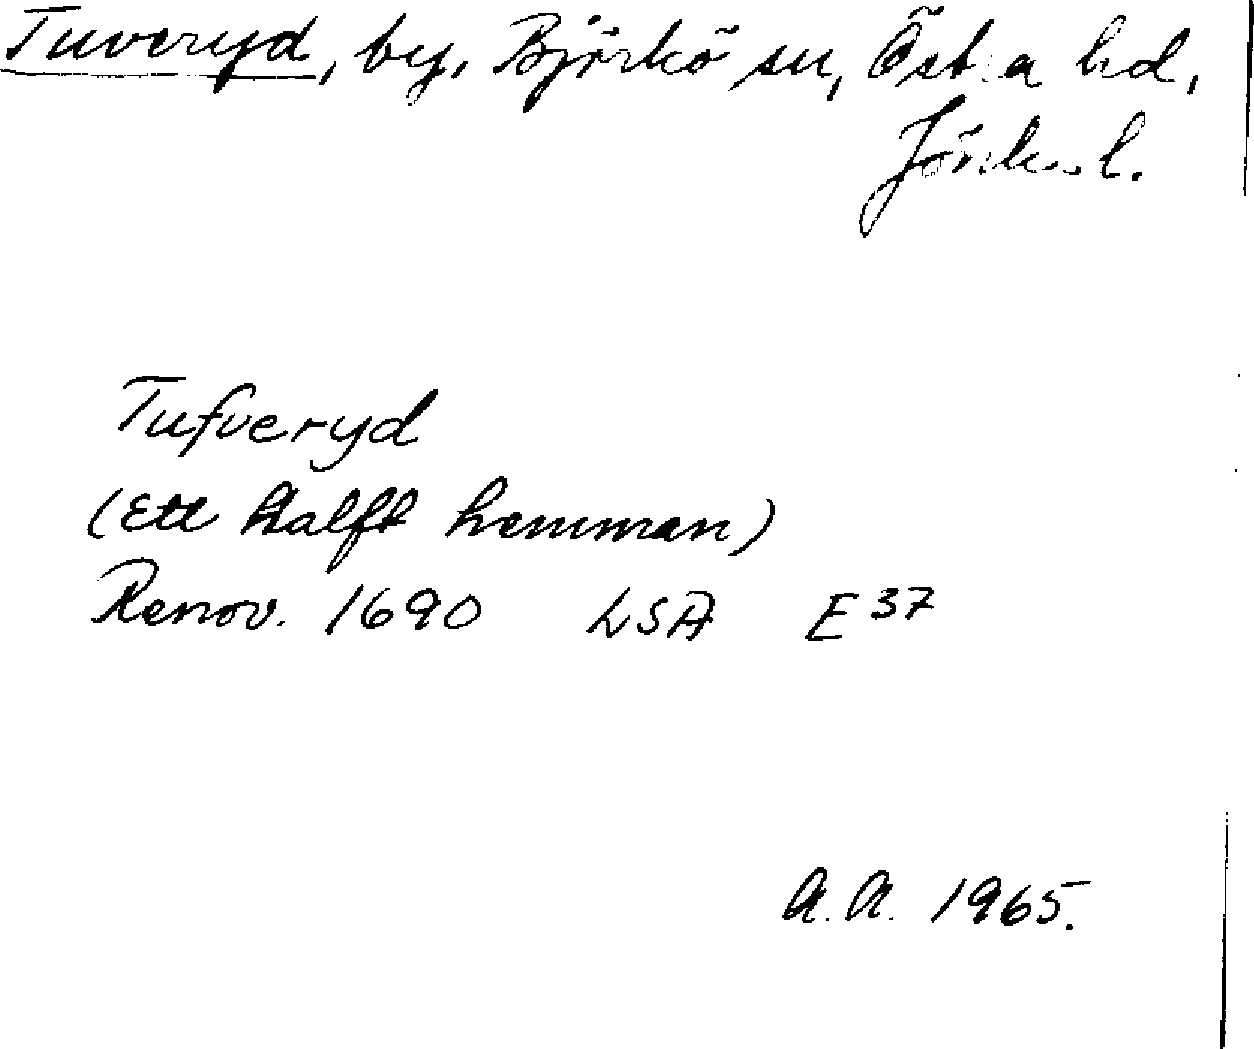 Tuveryd, by, Björkö sn, Östra hd,
Jönk. l.
Tufveryd
(Ett halft hemman)
Renov. 1690 LSA E 37
A.A. 1965.